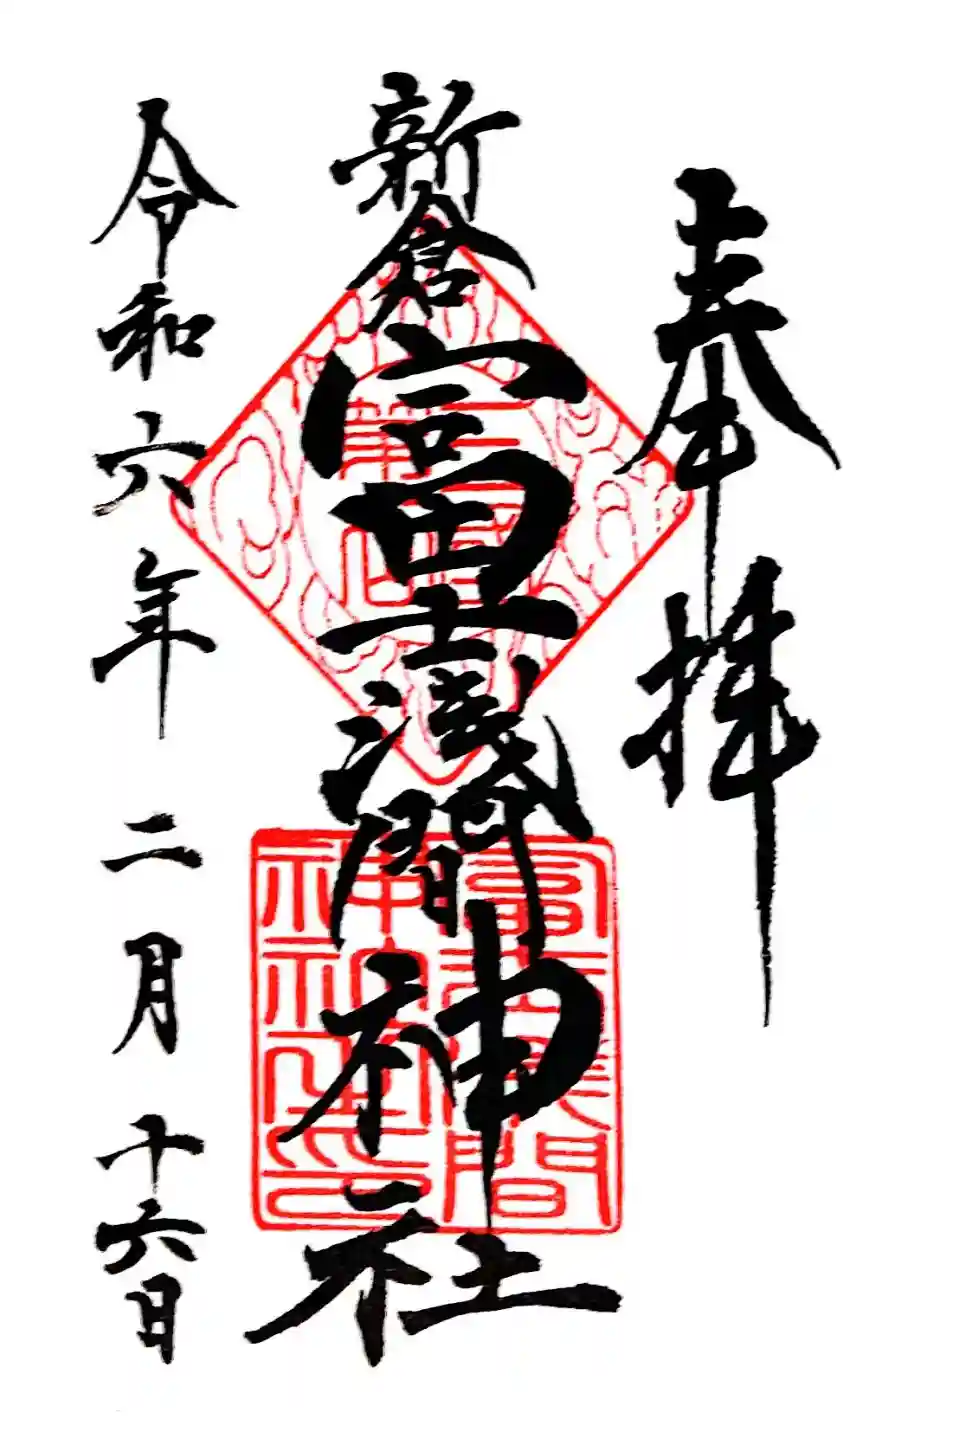 奉拝
新倉富士浅間神社
令和六年二月十六日
富士浅間
神社之印